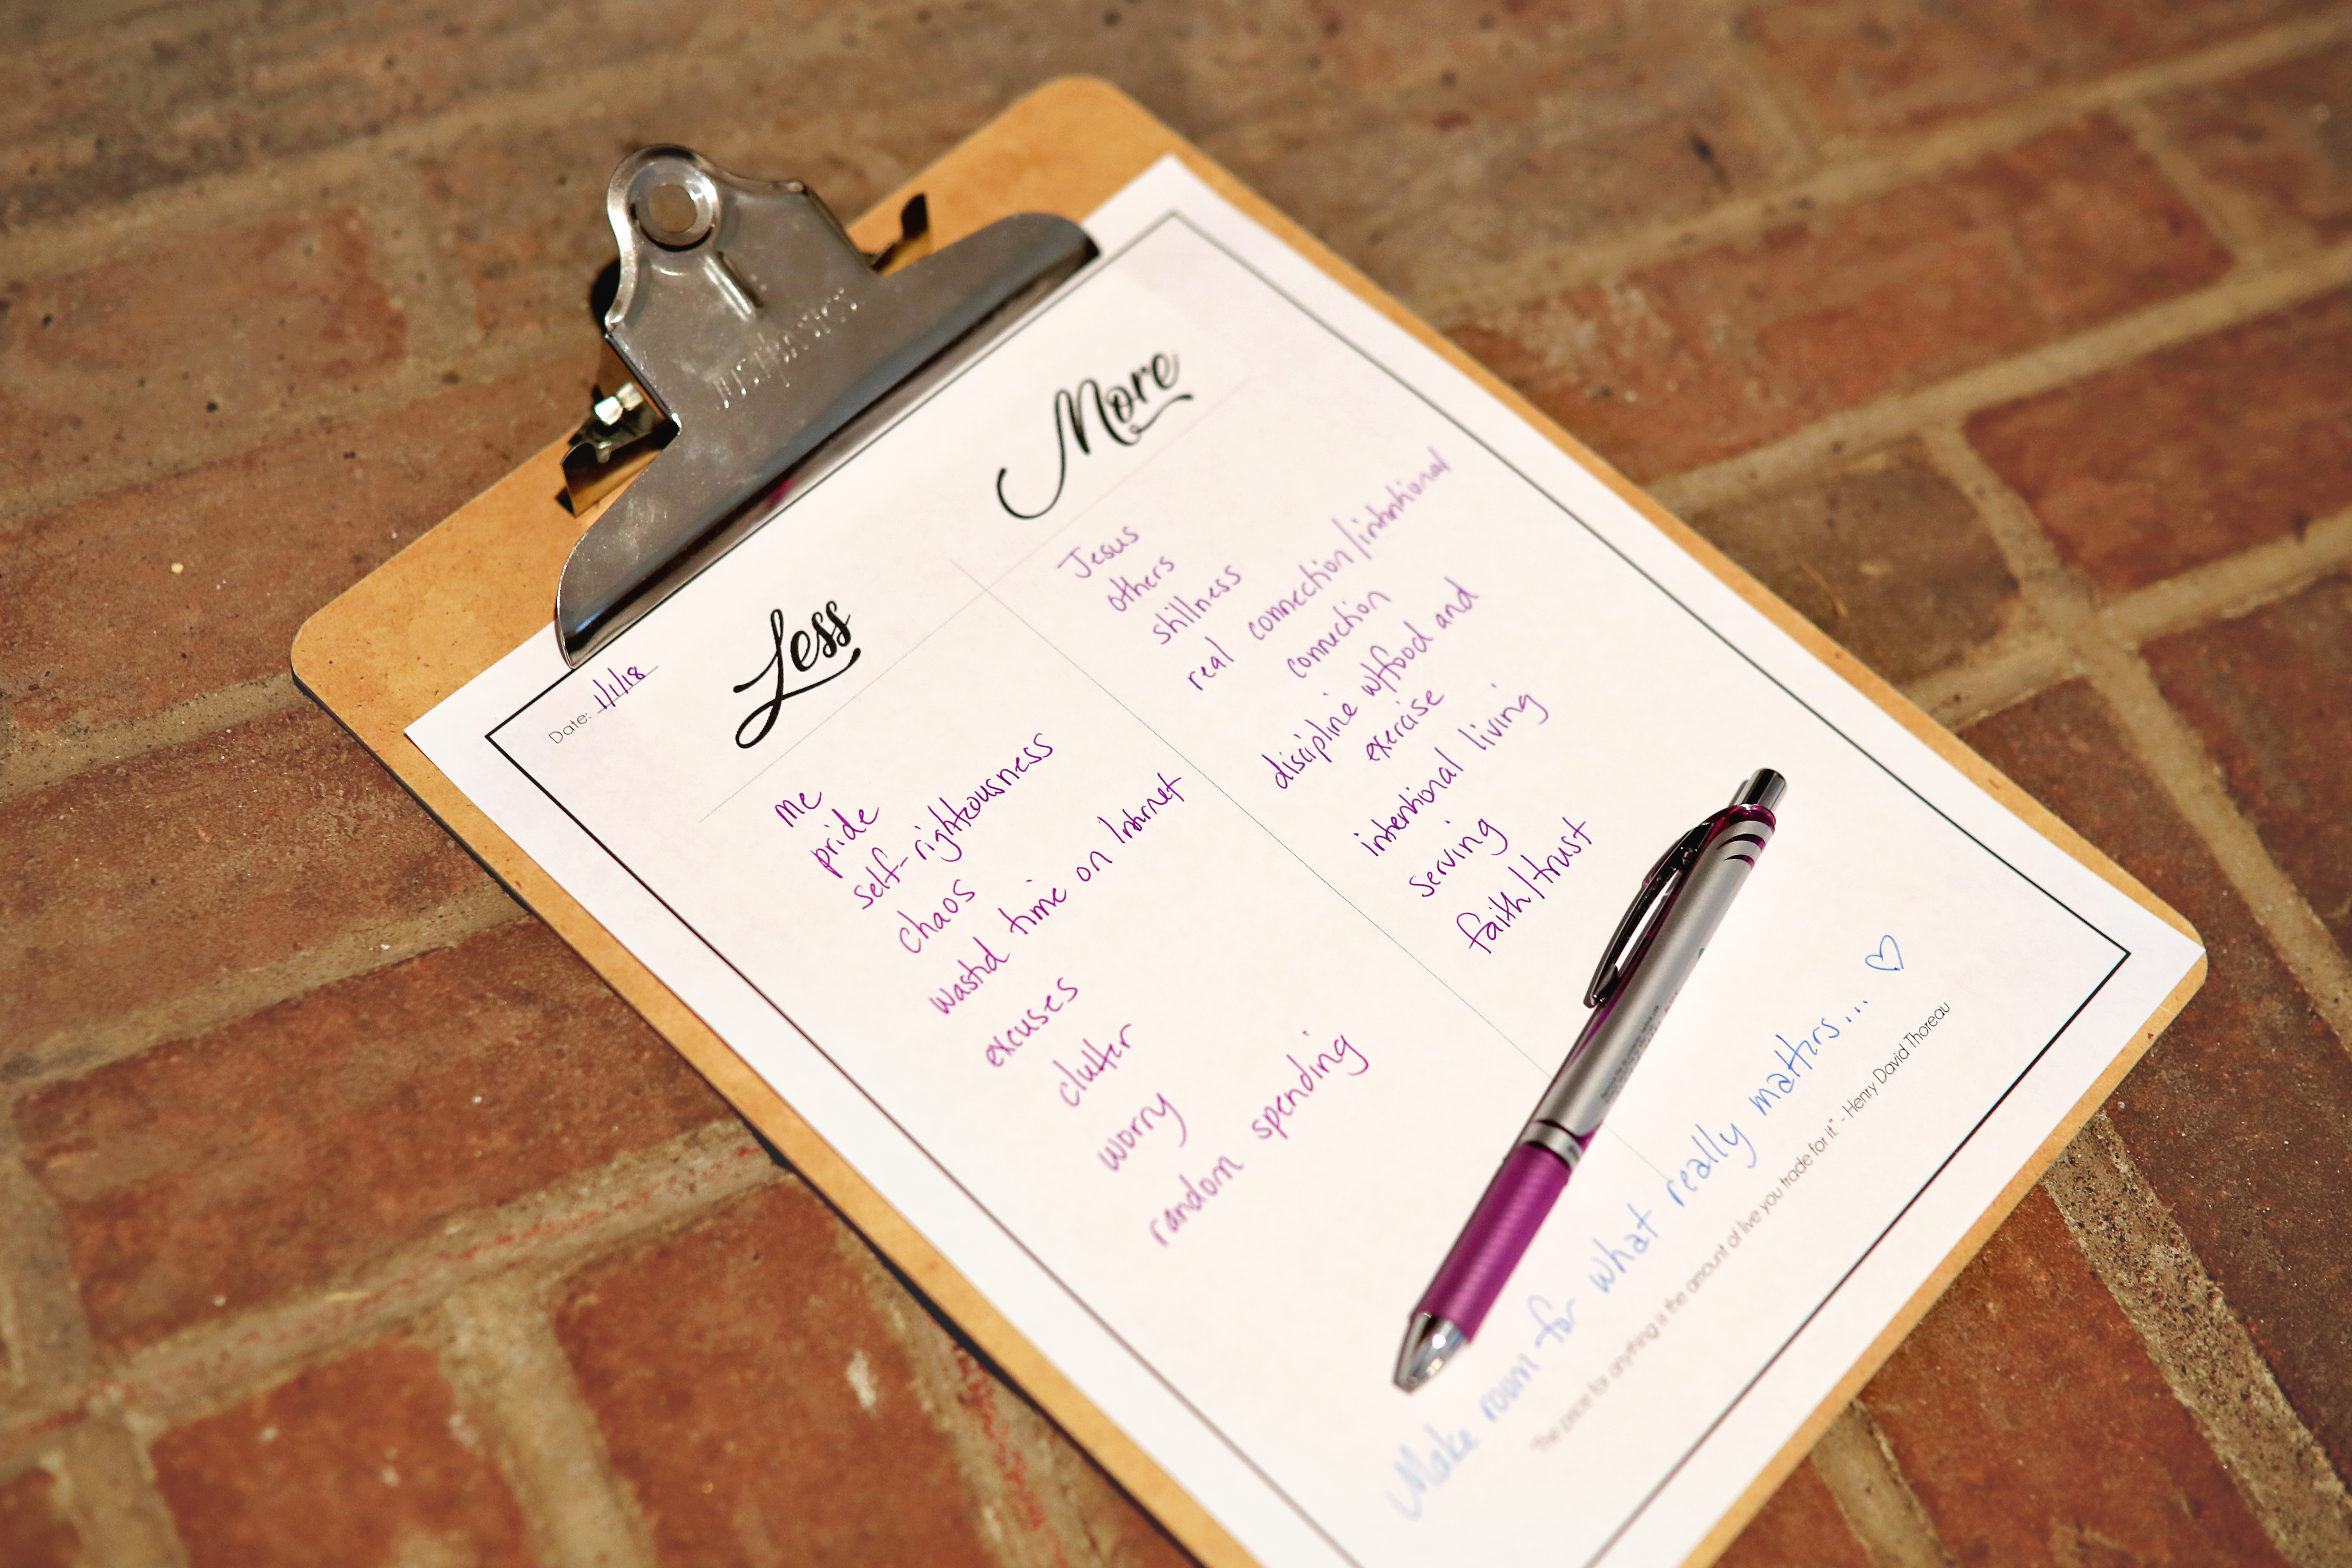 Date: 1/1/18
Less
me
pride
self-righteousness
chaos
wasted time on Internet
excuses
clutter
worry
random spending
More
Jesus
others
stillness
real connection/intentional
connection
discipline w/food and
exercise
intentional living
serving
faith/trust
Make room for what really matters... ♡
"The price for anything is the amount of live you trade for it." - Henry David Thoreau